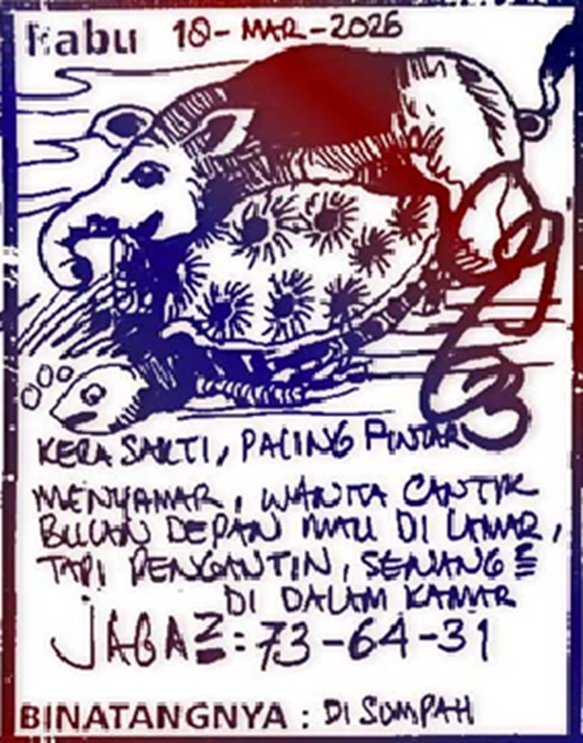 Rabu 18-MAR-2026
KERA SAKTI, PALING PINTAR
MENYAMAR, WANITA CANTIK
BULAN DEPAN MAU DI LAMAR,
TAPI PENGANTIN, SENANG²
DI DALAM KAMAR
JAGA²: 73-64-31
BINATANGNYA : DI SUMPAH